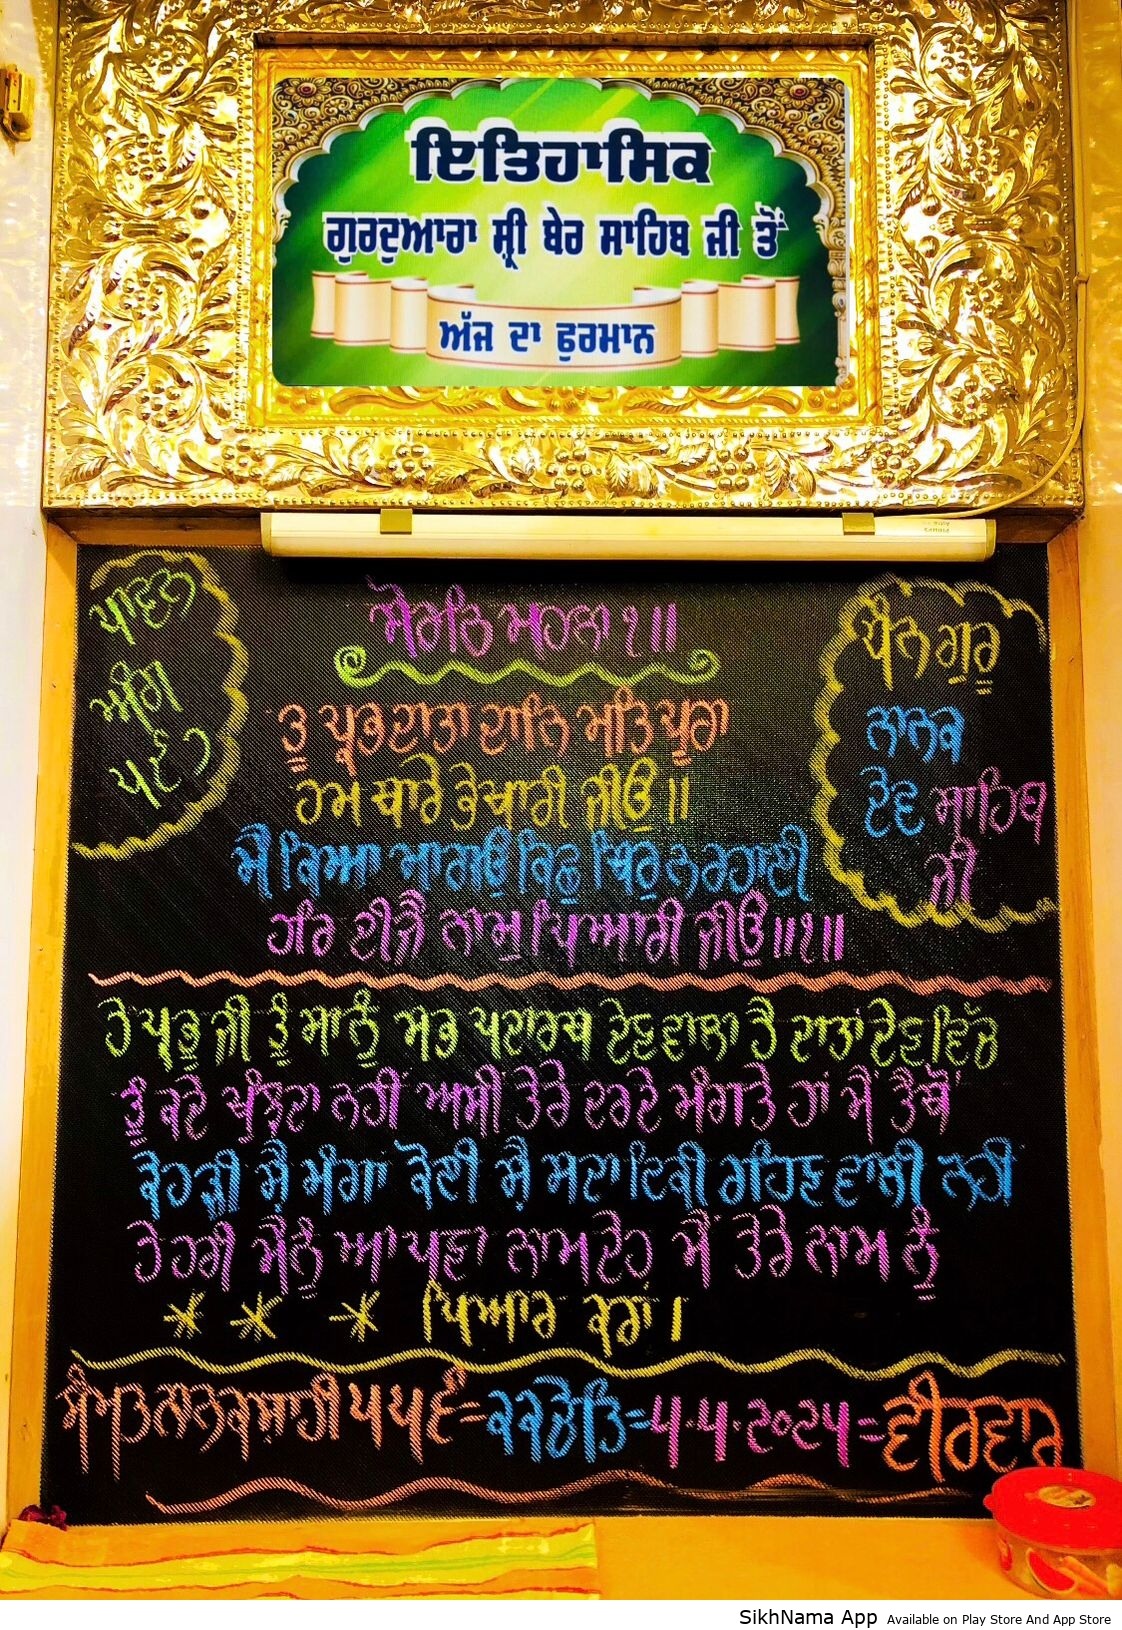 ਇਤਿਹਾਸਿਕ
ਗੁਰਦੁਆਰਾ ਸ਼੍ਰੀ ਬੇਰ ਸਾਹਿਬ ਜੀ ਤੋਂ
ਅੱਜ ਦਾ ਫੁਰਮਾਨ
ਪਾਵਨ
ਅੰਗ
ਸੋਰਠਿ ਮਹਲਾ ੧॥
ਧੰਨ ਗੁਰੂ
ਨਾਨਕ
ਦੇਵ ਸਾਹਿਬ
ਜੀ
ਤੂ ਪ੍ਰਭ ਦਾਤਾ ਦਾਨਿ ਮਤਿ ਪੂਰਾ
ਹਮ ਥਾਰੇ ਭੇਖਾਰੀ ਜੀਉ॥
ਮੈ ਕਿਆ ਮਾਗਉ ਕਿਛੁ ਥਿਰੁ ਨ ਰਹਾਈ
ਹਰਿ ਦੀਜੈ ਨਾਮੁ ਪਿਆਰੀ ਜੀਉ॥੧॥
ਹੇ ਪ੍ਰਭੂ ਜੀ ਤੂੰ ਸਾਨੂੰ ਸਭ ਪਦਾਰਥ ਦੇਣ ਵਾਲਾ ਹੈ ਦਾਤਾਂ ਦੇਣ ਵਿੱਚ
ਤੂੰ ਕਦੇ ਖੁੰਝਦਾ ਨਹੀਂ ਅਸੀਂ ਤੇਰੇ ਦਰ ਦੇ ਮੰਗਤੇ ਹਾਂ ਮੈਂ ਤੈਥੋਂ
ਕੇਹੜੀ ਸ਼ੈ ਮੰਗਾ ਕੋਈ ਸ਼ੈ ਸਦਾ ਟਿਕੀ ਰਹਿਣ ਵਾਲੀ ਨਹੀਂ
ਹੇ ਹਰੀ ਮੈਨੂੰ ਆਪਣਾ ਨਾਮ ਦੇਹ ਮੈਂ ਤੇਰੇ ਨਾਮ ਨੂੰ
* * * ਪਿਆਰ ਕਰਾਂ।
ਸੰਮਤ ਨਾਨਕਸ਼ਾਹੀ ੫੫੬= =੫.੫.੨੦੨੫=ਵੀਰਵਾਰ
SikhNama App Available on Play Store And App Store